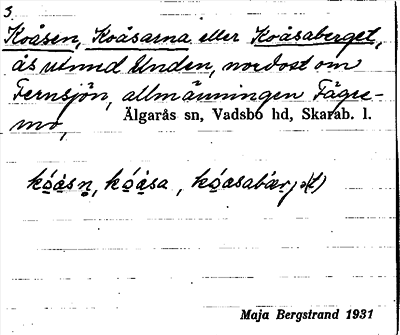 3
Koåsen, Koåsarna eller Koåsaberget,
ås utmed Unden, nordost om
Fernsjön, allmänningen Fägre-
mo, Älgarås sn, Vadsbo hd, Skarab. l.
kóåsn, kóåsa, kóasabär
Maja Bergstrand 1931